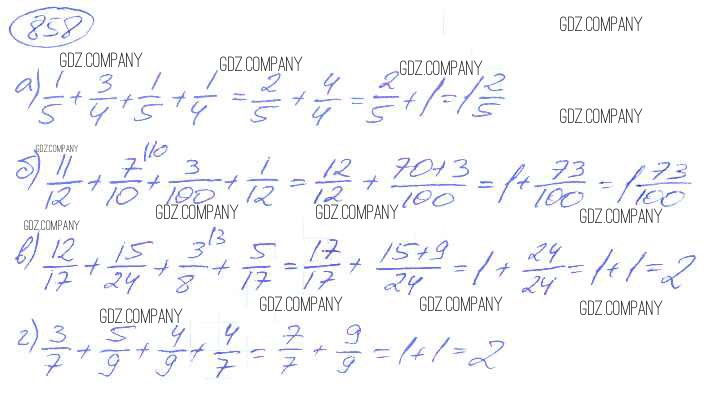 858
GDZ.COMPANY
GDZ.COMPANY GDZ.COMPANY GDZ.COMPANY
а) 1/5 + 3/4 + 1/5 + 1/4 = 2/5 + 4/4 = 2/5 + 1 = 1 2/5
GDZ.COMPANY
GDZ.COMPANY
б) 11/12 + 7/10 |10 + 3/100 + 1/12 = 12/12 + 70+3/100 = 1 + 73/100 = 1 73/100
GDZ.COMPANY GDZ.COMPANY GDZ.COMPANY
GDZ.COMPANY
в) 12/17 + 15/24 + 3/8 |3 + 5/17 = 17/17 + 15+9/24 = 1 + 24/24 = 1 + 1 = 2
GDZ.COMPANY GDZ.COMPANY GDZ.COMPANY GDZ.COMPANY
г) 3/7 + 5/9 + 4/9 + 4/7 = 7/7 + 9/9 = 1 + 1 = 2